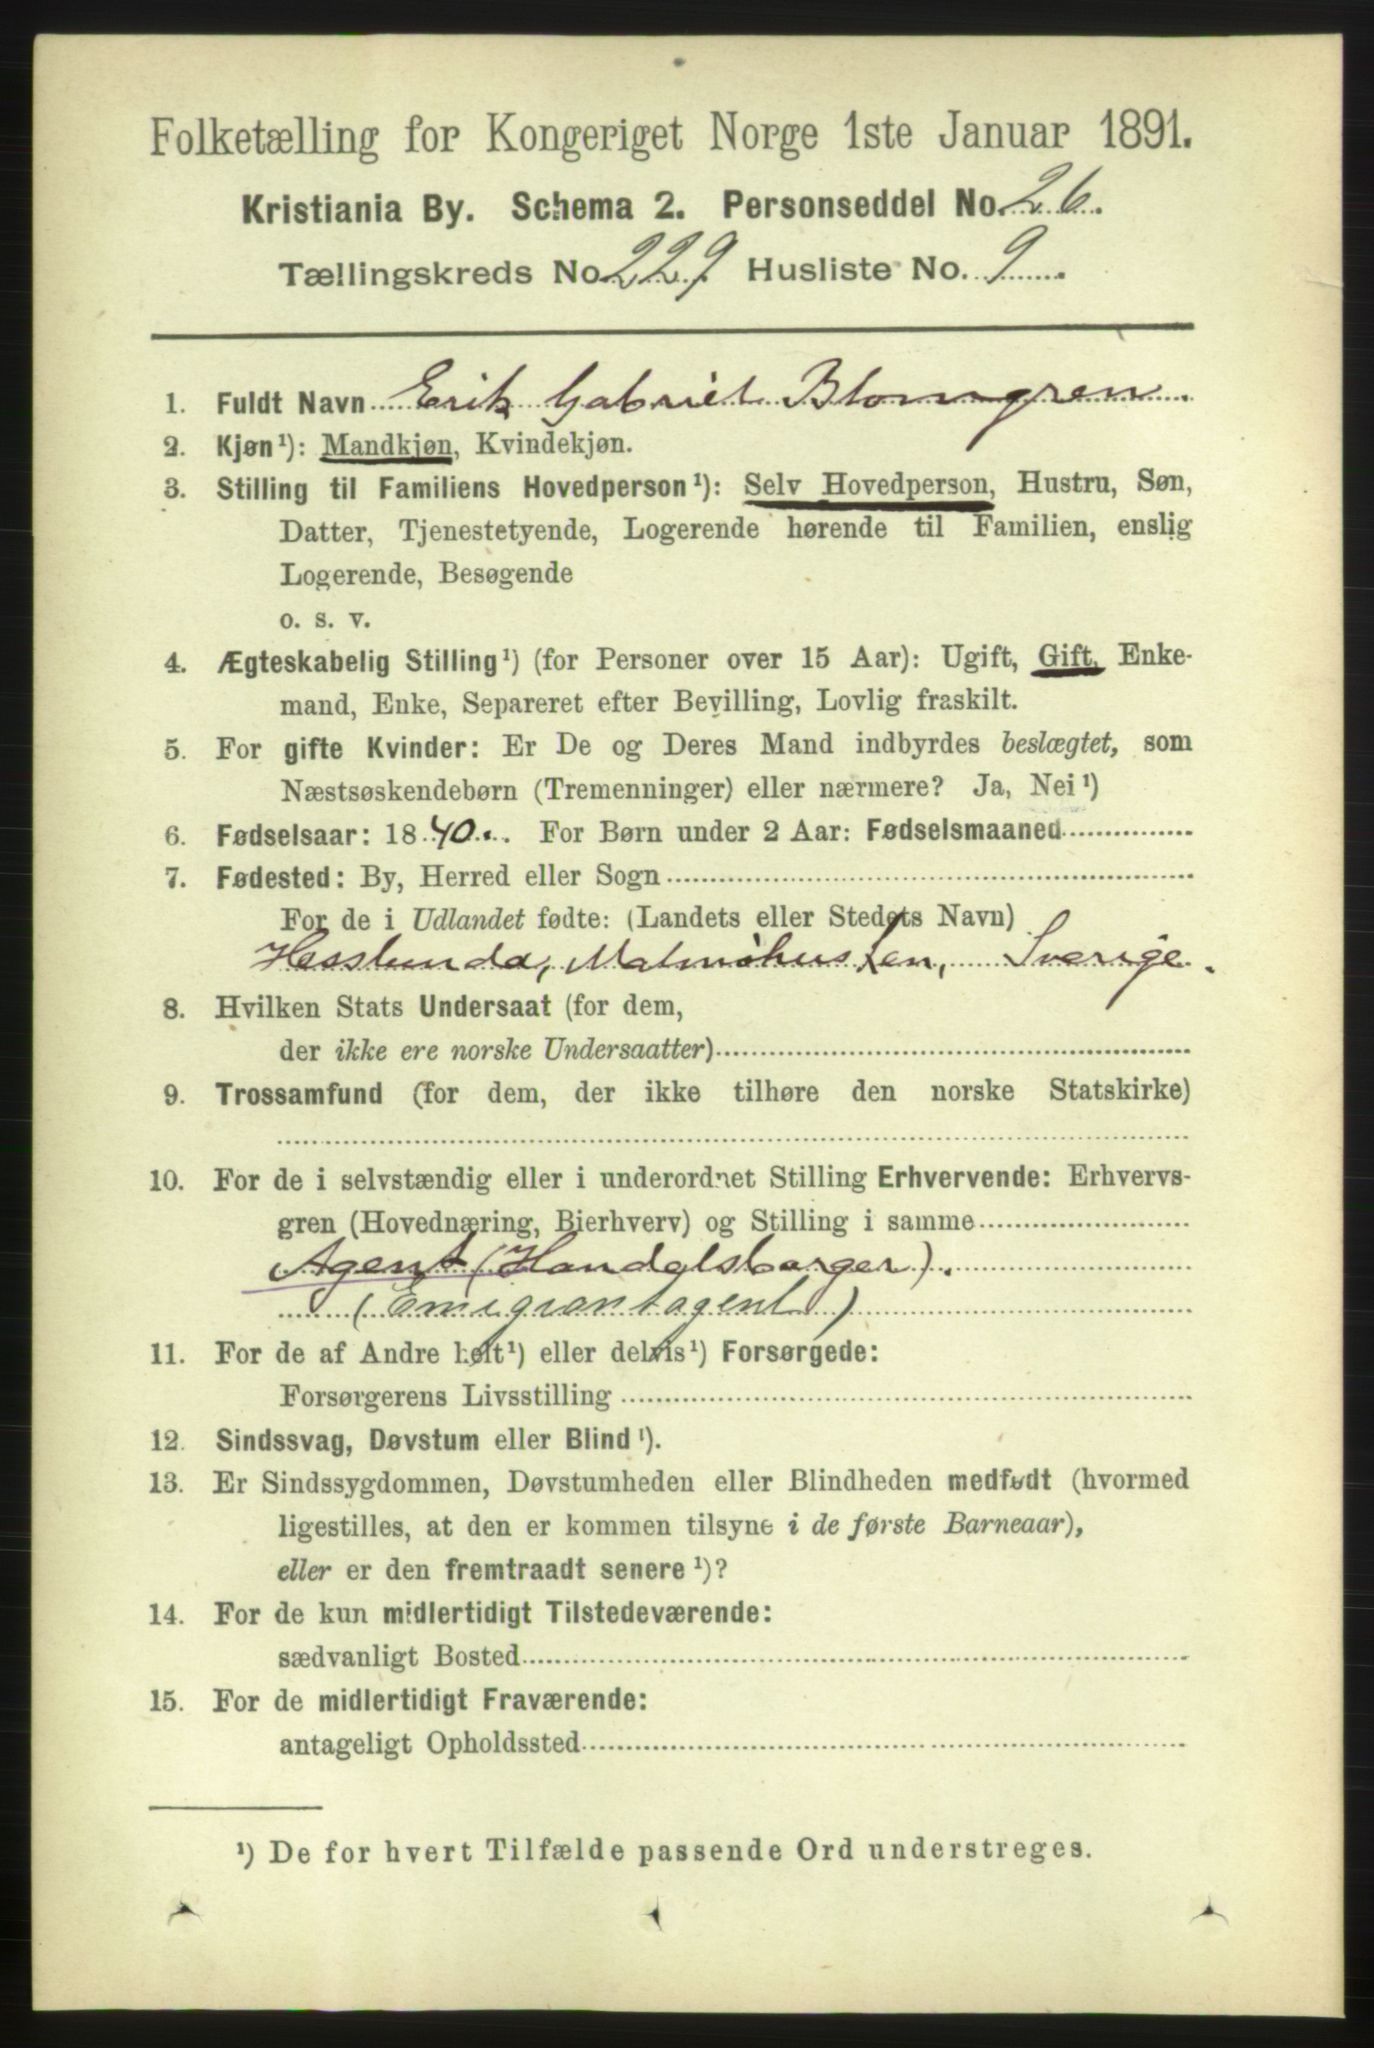 Folketælling for Kongeriget Norge 1ste Januar 1891.
Kristiania By. Schema 2. Personseddel No. 26.
Tællingskreds No. 229 Husliste No. 9
1. Fuldt Navn Erik Gabriel Blomgren.
2. Kjøn¹): Mandkjøn, Kvindekjøn.
3. Stilling til Familiens Hovedperson¹): Selv Hovedperson, Hustru, Søn,
Datter, Tjenestetyende, Logerende hørende til Familien, enslig
Logerende, Besøgende
o. s. v.
4. Ægteskabelig Stilling¹) (for Personer over 15 Aar): Ugift, Gift, Enke-
mand, Enke, Separeret efter Bevilling, Lovlig fraskilt.
5. For gifte Kvinder: Er De og Deres Mand indbyrdes beslægtet, som
Næstsøskendebørn (Tremenninger) eller nærmere? Ja, Nei¹)
6. Fødselsaar: 1840. For Børn under 2 Aar: Fødselsmaaned
7. Fødested: By, Herred eller Sogn
For de i Udlandet fødte: (Landets eller Stedets Navn)
Hesslunda, Malmöhus Len, Sverige.
8. Hvilken Stats Undersaat (for dem,
der ikke ere norske Undersaatter)
9. Trossamfund (for dem, der ikke tilhøre den norske Statskirke)
10. For de i selvstændig eller i underordnet Stilling Erhvervende: Erhvervs-
gren (Hovednæring, Bierhverv) og Stilling i samme
Agent (Handelsborger).
(Emigrantagent)
11. For de af Andre helt¹) eller delvis¹) Forsørgede:
Forsørgerens Livsstilling
12. Sindssvag, Døvstum eller Blind¹).
13. Er Sindssygdommen, Døvstumheden eller Blindheden medfødt (hvormed
ligestilles, at den er kommen tilsyne i de første Barneaar),
eller er den fremtraadt senere¹)?
14. For de kun midlertidigt Tilstedeværende:
sædvanligt Bosted
15. For de midlertidigt Fraværende:
antageligt Opholdssted
¹) De for hvert Tilfælde passende Ord understreges.